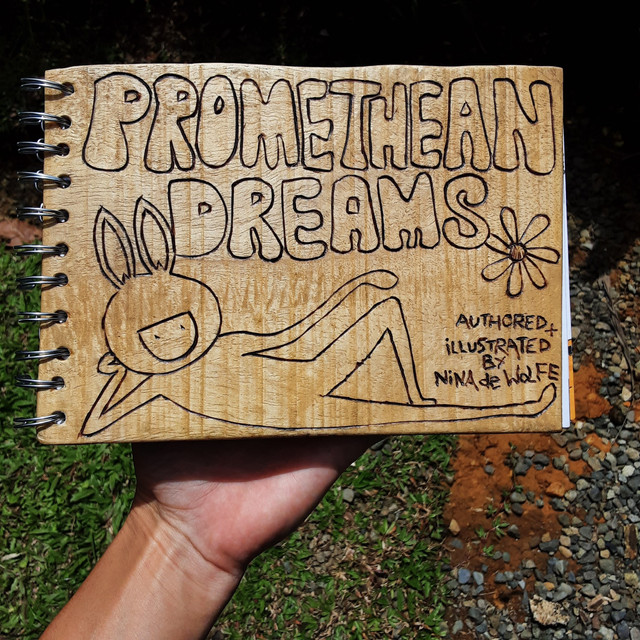 PROMETHEAN
DREAMS
AUTHORED+
iLLUSTRATED
BY
NiNA de WOLFE